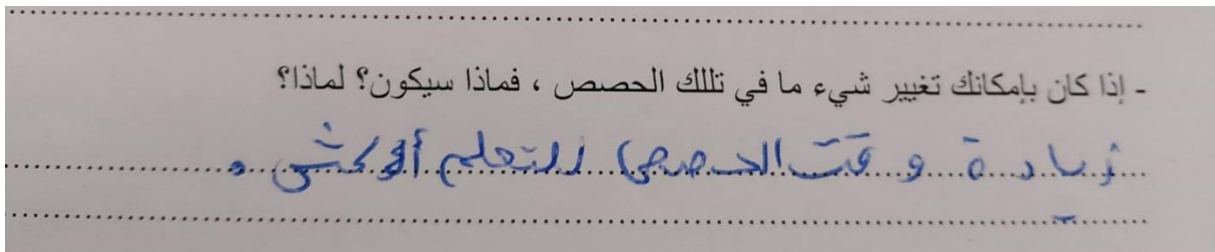 - إذا كان بإمكانك تغيير شيء ما في تللك الحصص ، فماذا سيكون؟ لماذا؟
زيادة وقت الحصص للتعلم أكثر.